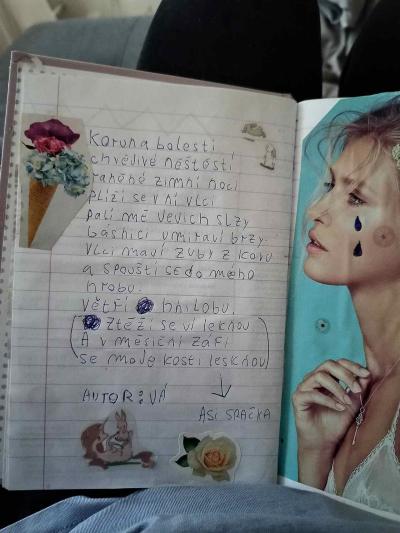 Koruna bolesti
chvějivé neštěstí
raněné zimní noci
plíží se v ní vlci
pálí mě ve vích slzy
básníci umíraví brzy
vlci maví zuby z kovu
a spouští se do mého
hrobu.
větří hnilobu.
(Ztěží se vi leknou
A v měsíční záři
se move kosti lesknou)
AUTOR: VÁ
ASI SRAČKA